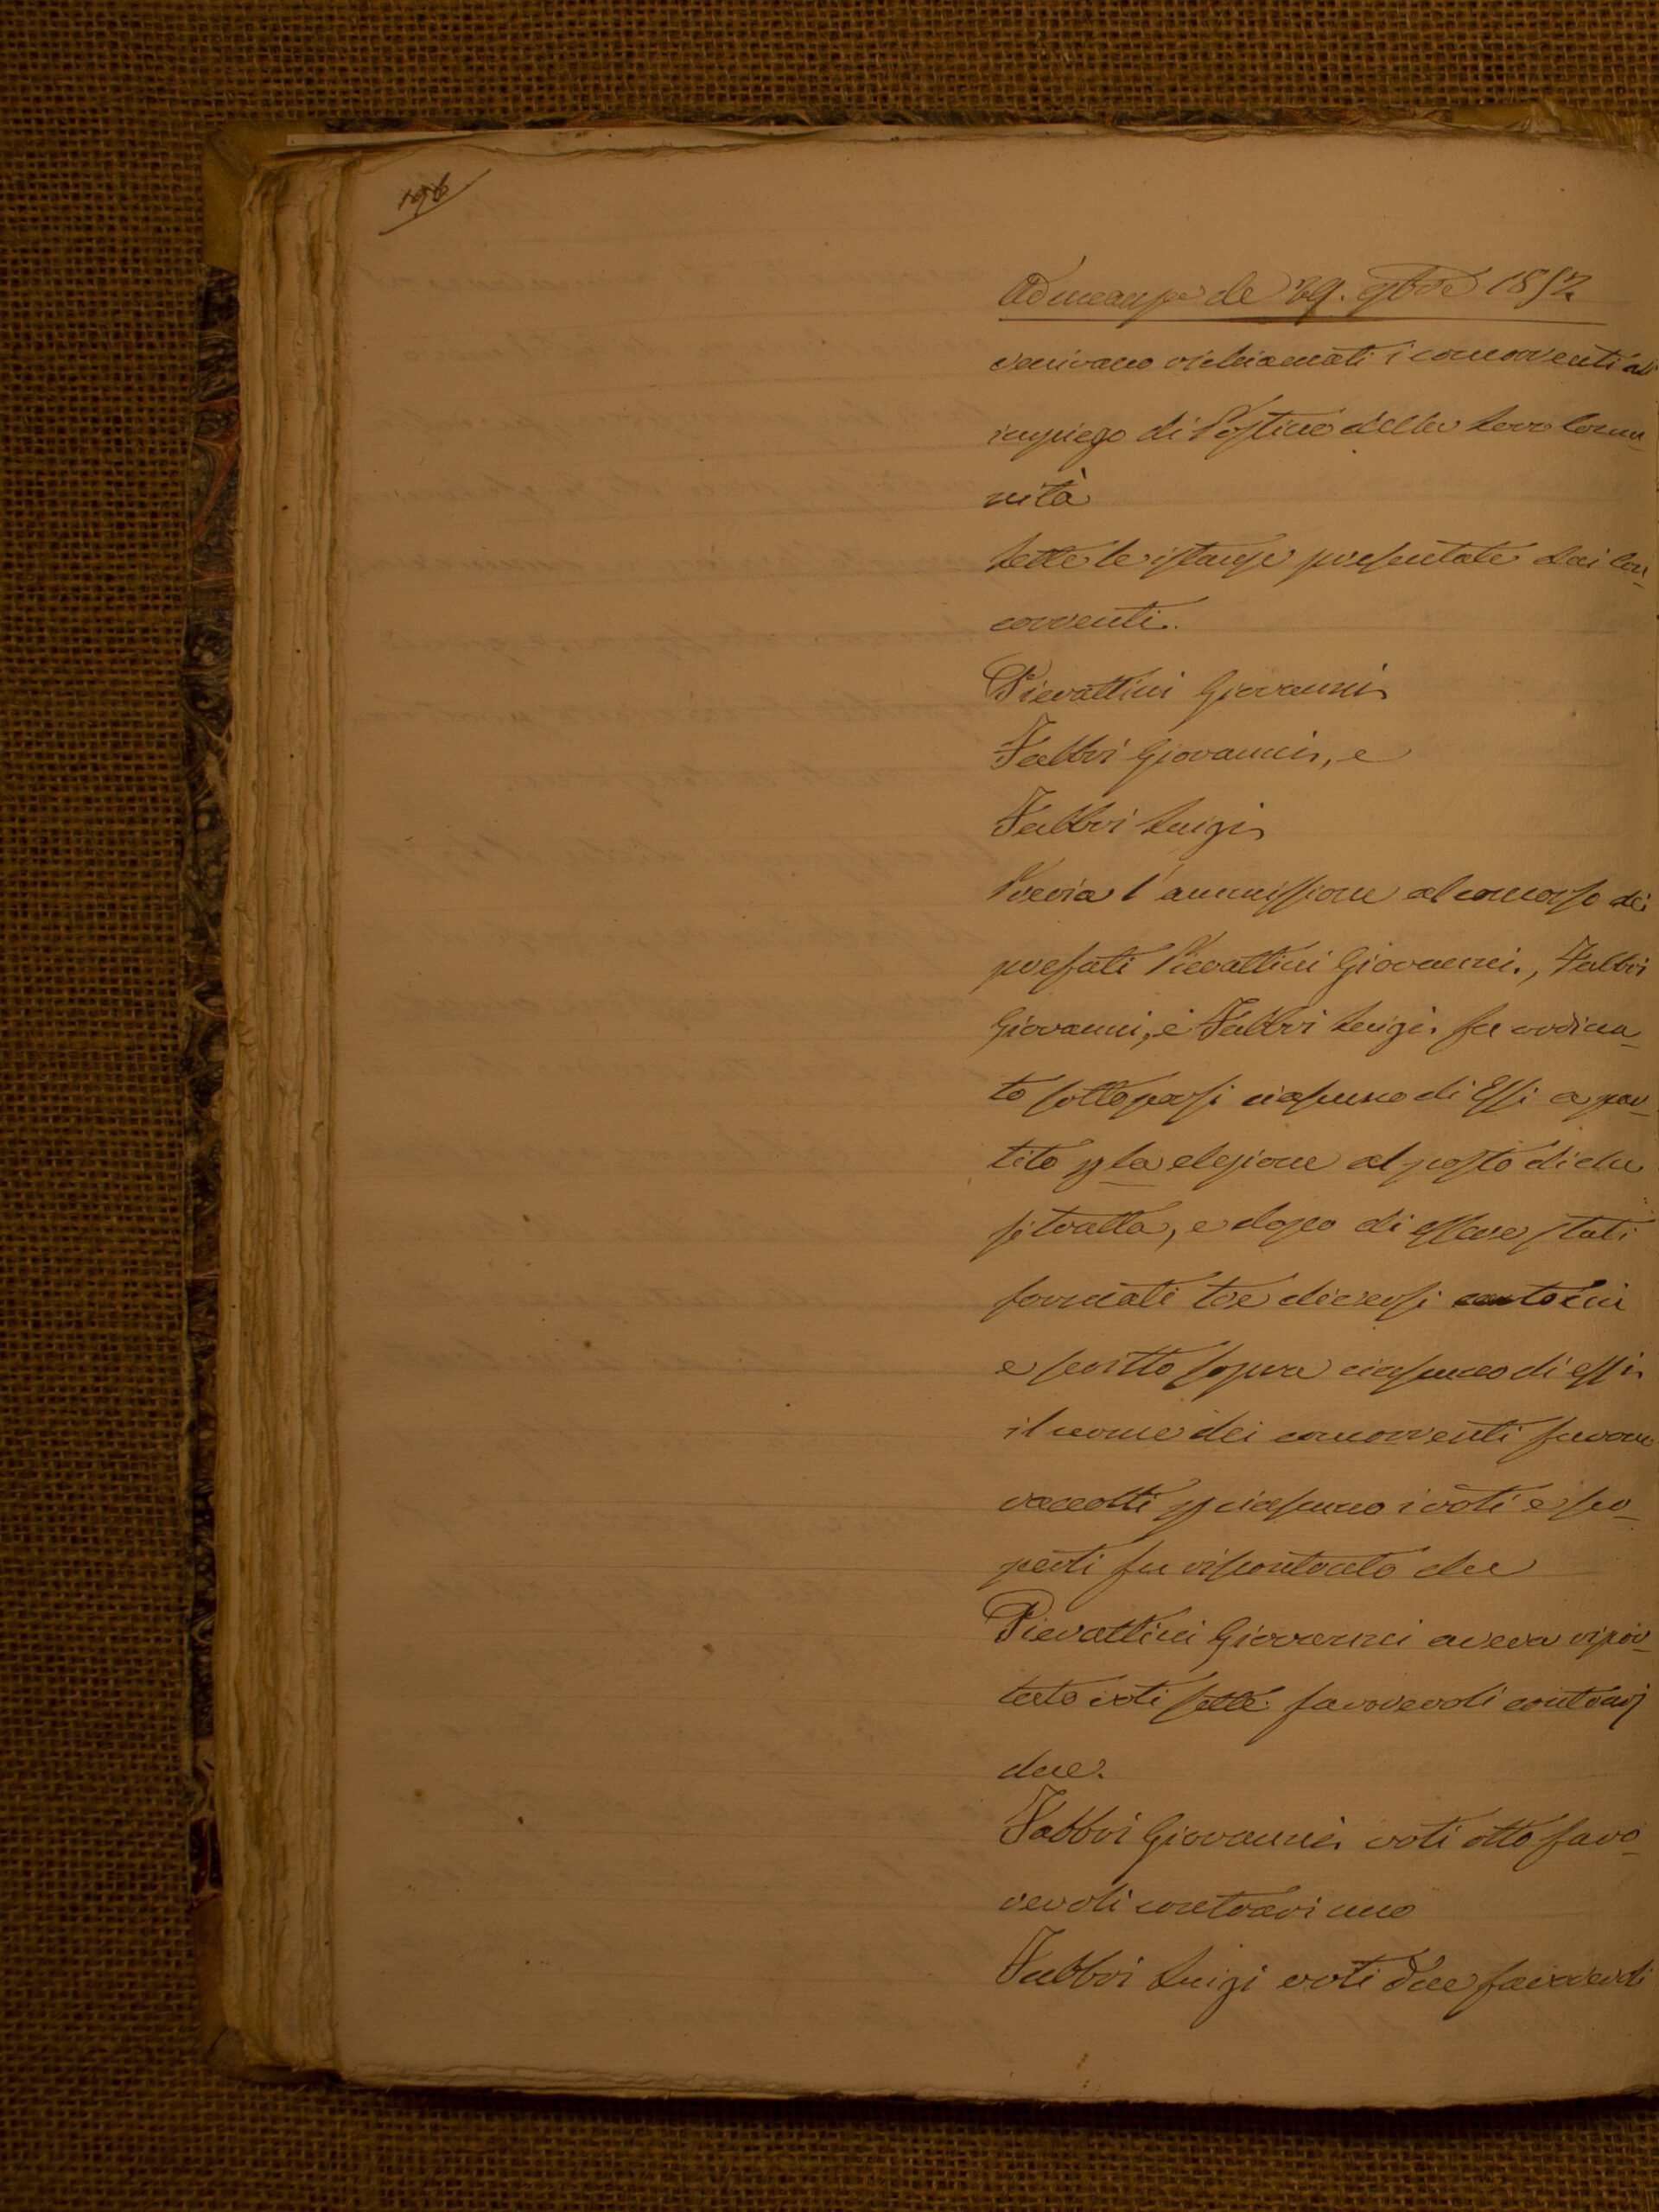 196
Adunanza de 29. 9bre 1852
venivano richiamati i concorrenti all'
impiego di Postino della loro Comu-
nità
Lette le istanze presentate dai Con-
correnti.
Pierattini Giovanni
Fabbri Giovanni, e
Fabbri Luigi
Previa l'ammissione al concorso dei
prefati Pierattini Giovanni., Fabbri
Giovanni, e Fabbri Luigi. fu ordina-
to sottoporsi ciascuno di Essi a par-
tito p la elezione al posto di che
si tratta, e dopo di essere stati
formati tre diversi
e scritto sopra ciascuno di essi
il nome dei concorrenti furono
raccolti p ciascuno i voti e sco-
perti fu riscontrato che
Pierattini Giovanni aveva ripor-
tato voti sette favorevoli contrarj
due.
Fabbri Giovanni voti otto favo-
revoli contrari uno
Fabbri Luigi voti due favorevoli